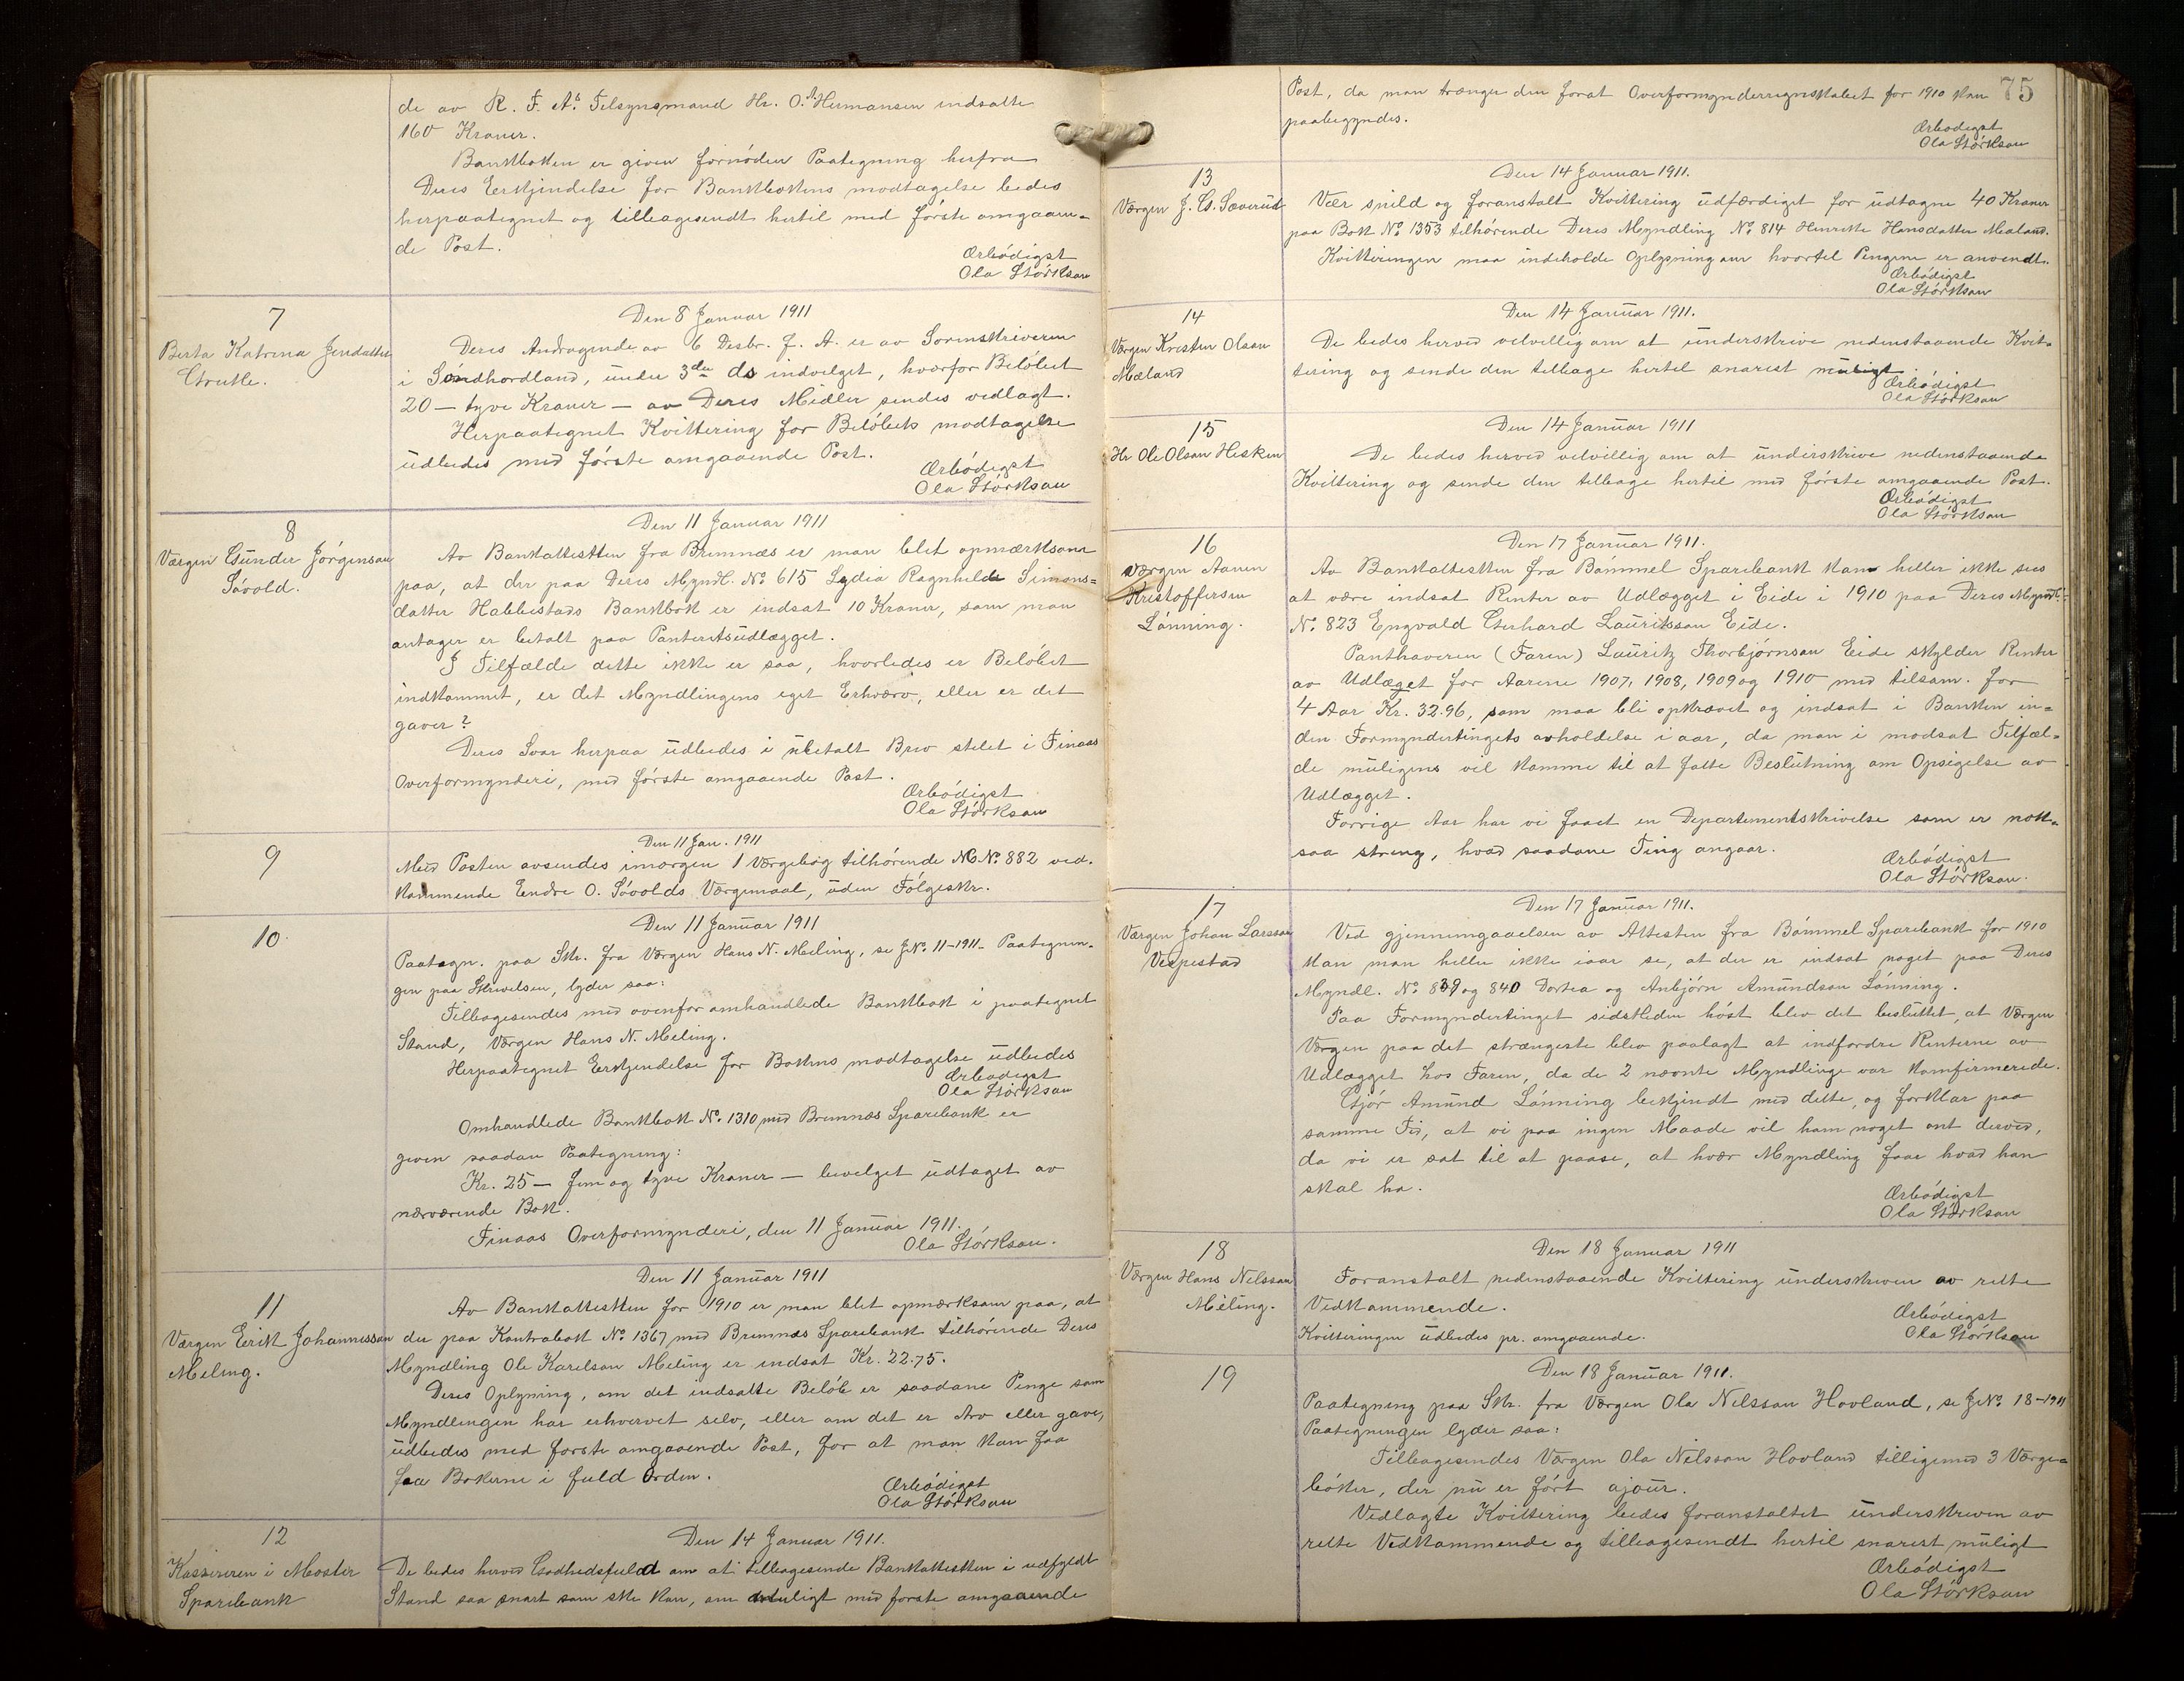 de av R. F. A's Tilsynsmand Hr. O. A. Hermansen indsatte
160 Kroner.
Bankboken er given fornöden Paategning herfra
Deres Erkjendelse for Bankbokens modtagelse bedes
herpaategnet og tilbagesendt hertil med förste omgaaen-
de Post.
Ærbödigst
Ola Störkson
7
Berta Katrina Jensdatter
Den 8 Januar 1911
Deres Andragende av 6 Desbr. f. A. er av Sorenskriveren
i Söndhordland, under 3die ds indvilget, hvorfor Belöbet
20 — tyve Kroner — av Deres Midler sendes vedlagt.
Herpaategnet Kvittering for Belöbets modtagelse
udbedes med förste omgaaende Post.
Ærbödigst
Ola Störkson
8
Værgen Gunder Jörgenson
Sövold.
Den 11 Januar 1911
Av Bankattesten fra Bremnæs er man blet opmærksom
paa, at der paa Deres Myndl. No 615 Lydia Ragnhilde Simons=
datter Habbestads Bankbok er indsat 10 Kroner, som man
antager er betalt paa Panteretsudlægget.
I Tilfælde dette ikke er saa, hvorledes er Belöbet
indkommet, er det Myndlingens eget Erhverv, eller er det
gaver?
Deres Svar herpaa udbedes i ubetalt Brev stilet i Finaas
Overformynderi, med förste omgaaende Post.
Ærbödigst
Ola Störkson
9
Den 11 Jan. 1911
Med Posten avsendes imorgen 1 Værgebog tilhörende M. No. 882 ved.
kommende Endre O. Sövolds Værgemaal, uden Fölgeskr.
10.
Den 11 Januar 1911
Paategn. paa Skr. fra Værgen Hans N. Meling, se J.No. 11-1911. Paategnin-
gen paa Skrivelsen, lyder saa:
Tilbagesendes med ovenfor omhandlede Bankbok i paategnet
Stand, Værgen Hans N. Meling.
Herpaategnet Erkjendelse for Bokens modtagelse udbedes
Ærbödigst
Ola Störkson
Omhandlede Bankbok No. 1310 med Bremnæs Sparebank er
given saadan Paategning:
Kr. 25 — fem og tyve Kroner — bevilget udtaget av
nærværende Bok.
Finaas Overformynderi, den 11 Januar 1911.
Ola Störkson.
11
Værgen Erik Johannesson
Meling.
Den 11 Januar 1911
Av Bankattesten for 1910 er man blet opmærksom paa, at
der paa Kontrabok No 1367 med Bremnæs Sparebank tilhörende Deres
Myndling Ole Karelson Meling er indsat Kr. 22.75.
Deres Oplysning, om det indsatte Belöb er saadane Penge som
Myndlingen har erhvervet selv, eller om det er Arv eller gave,
udbedes med förste omgaaende Post, for at man kan faa
faa Bökerne i fuld Orden.
Ærbödigst
Ola Störkson
12
Kassereren i Moster
Sparebank
Den 14 Januar 1911.
De bedes herved Godhedsfuld om at tilbagesende Bankattesten i udfyldt
Stand saa snart som ske kan, om muligt med förste omgaaende
75
Post, da man trænger den forat Overformynderregnskabet for 1910 kan
paabegyndes.
Ærbödigst
Ola Störkson
13
Værgen J. G. Sæverud
Den 14 Januar 1911.
Vær snild og foranstalt Kvittering udfærdiget for udtagne 40 Kroner
paa Bok No. 1353 tilhörende Deres Myndling No. 814 Henrikke Hansdatter Mæland.
Kvitteringen maa indeholde Oplysning om hvortil Pengene er anvendt.
Ærbödigst
Ola Störkson
14
Værgen Kristen Olson
Mæland
Den 14 Januar 1911.
De bedes herved velvillig om at underskrive nedenstaaende Kvit-
tering og sende den tilbage hertil snarest muligt
Ærbödigst
Ola Störkson
15
Hr Ole Olson Hisken
Den 14 Januar 1911
De bedes herved velvillig om at underskrive nedenstaaende
Kvittering og sende den tilbage hertil med förste omgaaende Post.
Ærbödigst
Ola Störkson
16
Værgen Aanen
Kristoffersen
Lönning.
Den 17 Januar 1911.
Av Bankattesten fra Bömmel Sparebank kan heller ikke sees
at være indsat Renter av Udlægget i Eide i 1910 paa Deres Myndl.
No. 823 Engvald Gerhard Lauritsson Eide.
Panthaveren (Faren) Lauritz Thorbjörnson Eide skylder Renter
av Udlæget for Aarene 1907, 1908, 1909 og 1910 med tilsam. for
4 Aar Kr. 32.96, som maa bli opkrævet og indsat i Banken in-
den Formyndertingets avholdelse i aar, da man i modsat Tilfæl-
de muligens vil komme til at fatte Beslutning om Opsigelse av
Udlægget.
Forrige Aar har vi faaet en Departementskrivelse som er nok-
saa streng, hvad saadane Ting angaar.
Ærbödigst
Ola Störkson.
17
Værgen Johan Larsson
Vespestad
Den 17 Januar 1911.
Ved gjennemgaaelsen av Attesten fra Bömmel Sparebank for 1910
kan man heller ikke iaar se, at der er indsat noget paa Deres
Myndl. No. 839 og 840 Dortea og Anbjörn Amundson Lönning.
Paa Formyndertinget sidstleden höst blev det besluttet, at Værgen
Værgen paa det strængeste blev paalagt at indfordre Renterne av
Udlægget hos Faren, da de 2 nævnte Myndlinge var konfirmerede.
Gjör Amund Lönning bekjendt med dette, og forklar paa
samme Tid, at vi paa ingen Maade vil ham noget ont derved,
da vi er sat til at paase, at hver Myndling faar hvad han
skal ha.
Ærbödigst
Ola Störkson
18
Værgen Hans Nelsson
Meling.
Den 18 Januar 1911
Foranstalt nedenstaaende Kvittering underskreven av rette
Vedkommende.
Kvitteringen udbedes pr. omgaaende.
Ærbödigst
Ola Störkson
19
Den 18 Januar 1911.
Paategning paa Skr. fra Værgen Ola Nelsson Hovland, se J.No. 18-1911
Paategningen lyder saa:
Tilbagesendes Værgen Ola Nelsson Hovland tilligemed 3 Værge-
böker, der nu er fört ajour.
Vedlagte Kvittering bedes foranstaltet underskreven av
rette Vedkommende og tilbagesendt hertil snarest muligt
Ærbödigst
Ola Störkson